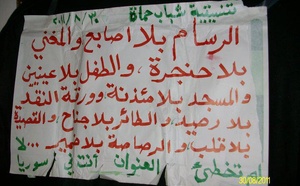 تنسيقية شباب حماة ٢٠١١/٨/٣٠
الرسام بلا اصابع والمغني
بلا حنجرة، والطفل بلا عينين
والمسجد بلا مئذنة وورقة النقد
بلا رصيد، والطائر بلا جناح، والقصيدة
بلا قلب، والرصاصة بلا ضمير...لا
تخطئ العنوان أنت في سوريا
30/08/2011